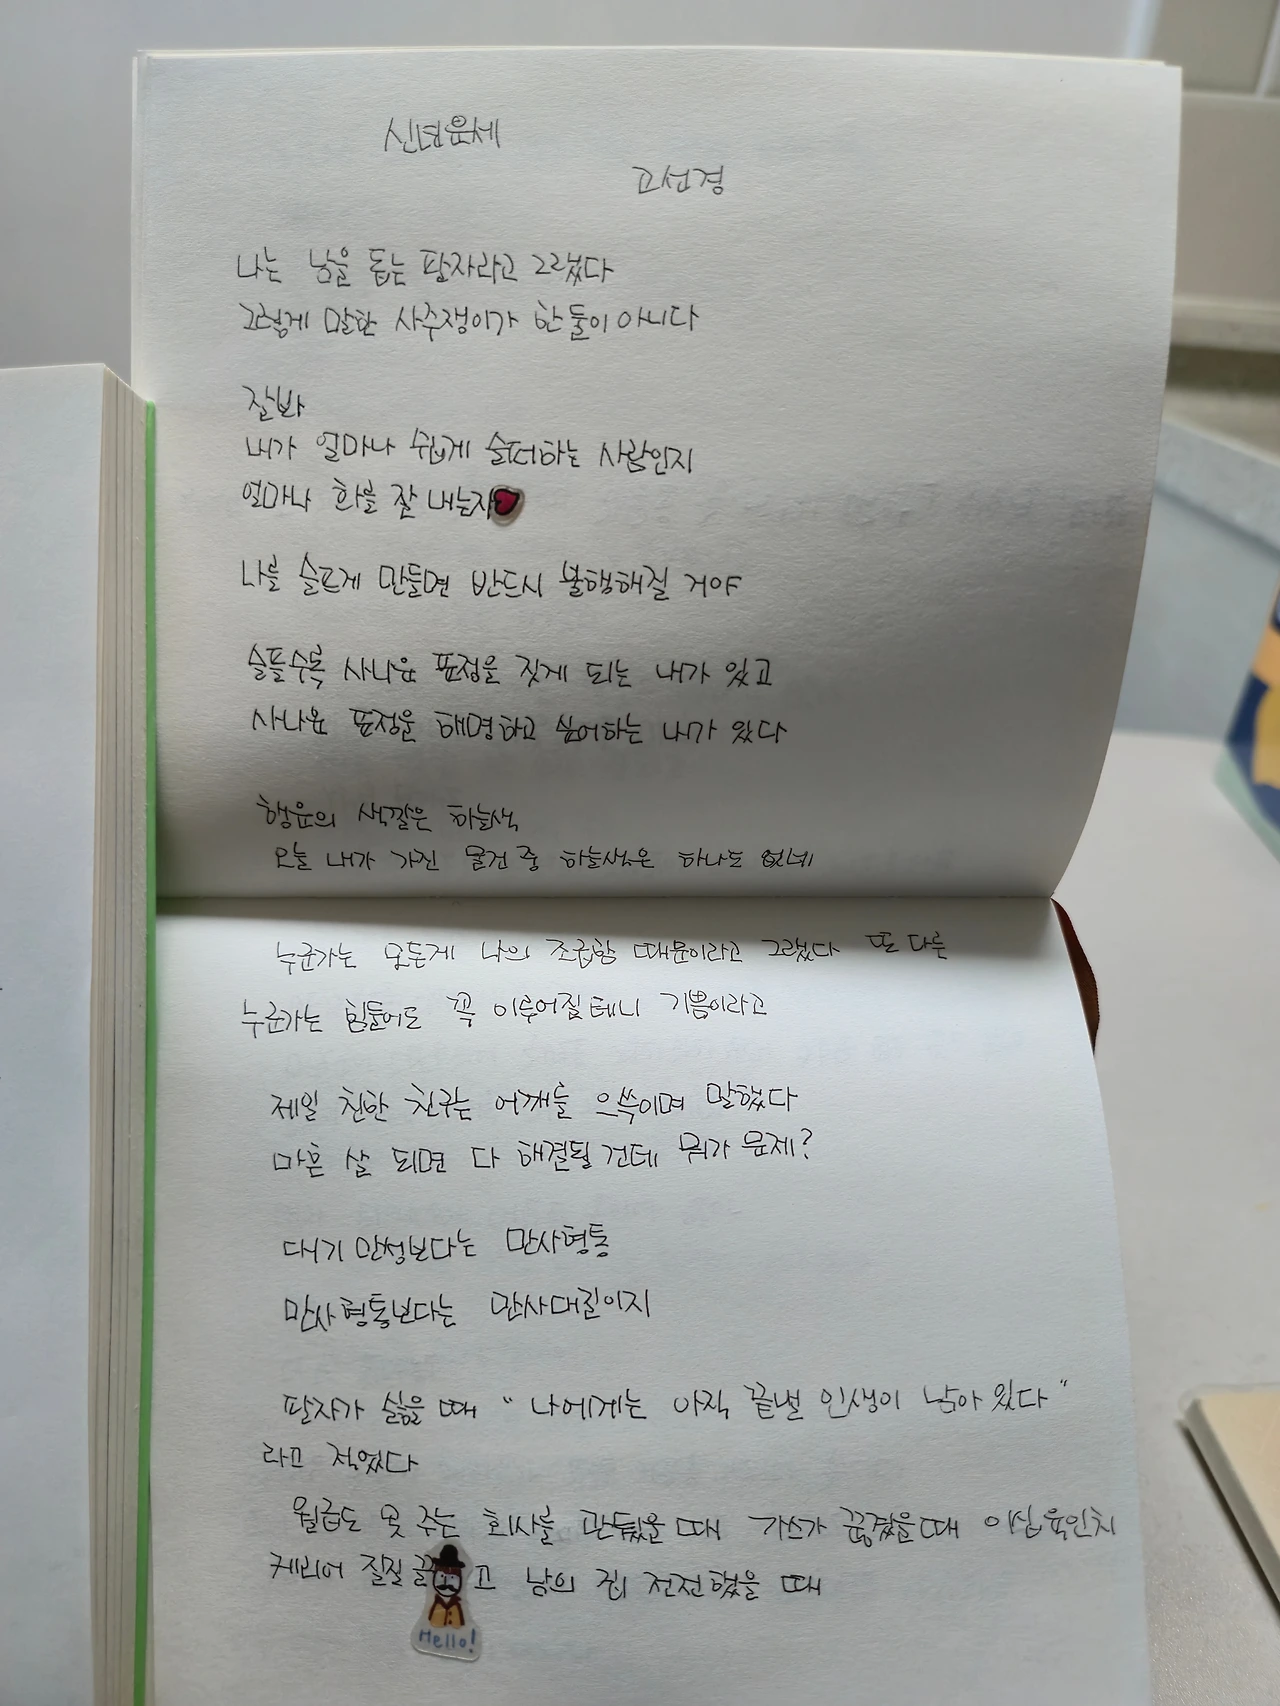 신년운세
고선경
나는 남을 돕는 팔자라고 그랬다
그렇게 말한 사주쟁이가 한둘이 아니다
잘봐
내가 얼마나 쉽게 슬퍼하는 사람인지
얼마나 화를 잘 내는지
나를 슬프게 만들면 반드시 불행해질 거야
슬플수록 사나운 표정을 짓게 되는 내가 있고
사나운 표정을 해명하고 싶어하는 내가 있다
행운의 색깔은 하늘색
오늘 내가 가진 물건 중 하늘색은 하나도 없네
누군가는 모든게 나의 조급함 때문이라고 그랬다 또 다른
누군가는 힘들어도 꼭 이루어질테니 기쁨이라고
제일 친한 친구는 어깨를 으쓱이며 말했다
마흔 살 되면 다 해결될 건데 뭐가 문제?
대기만성보다는 만사형통
만사형통보다는 만사대길이지
팔자가 싫을 때 "나에게는 아직 끝낼 인생이 남아 있다"
라고 적었다
월급도 못 주는 회사를 관뒀을 때 가스가 끊겼을 때 이십육인치
케리어 질질 고 남의 집 전전했을 때
Hello!